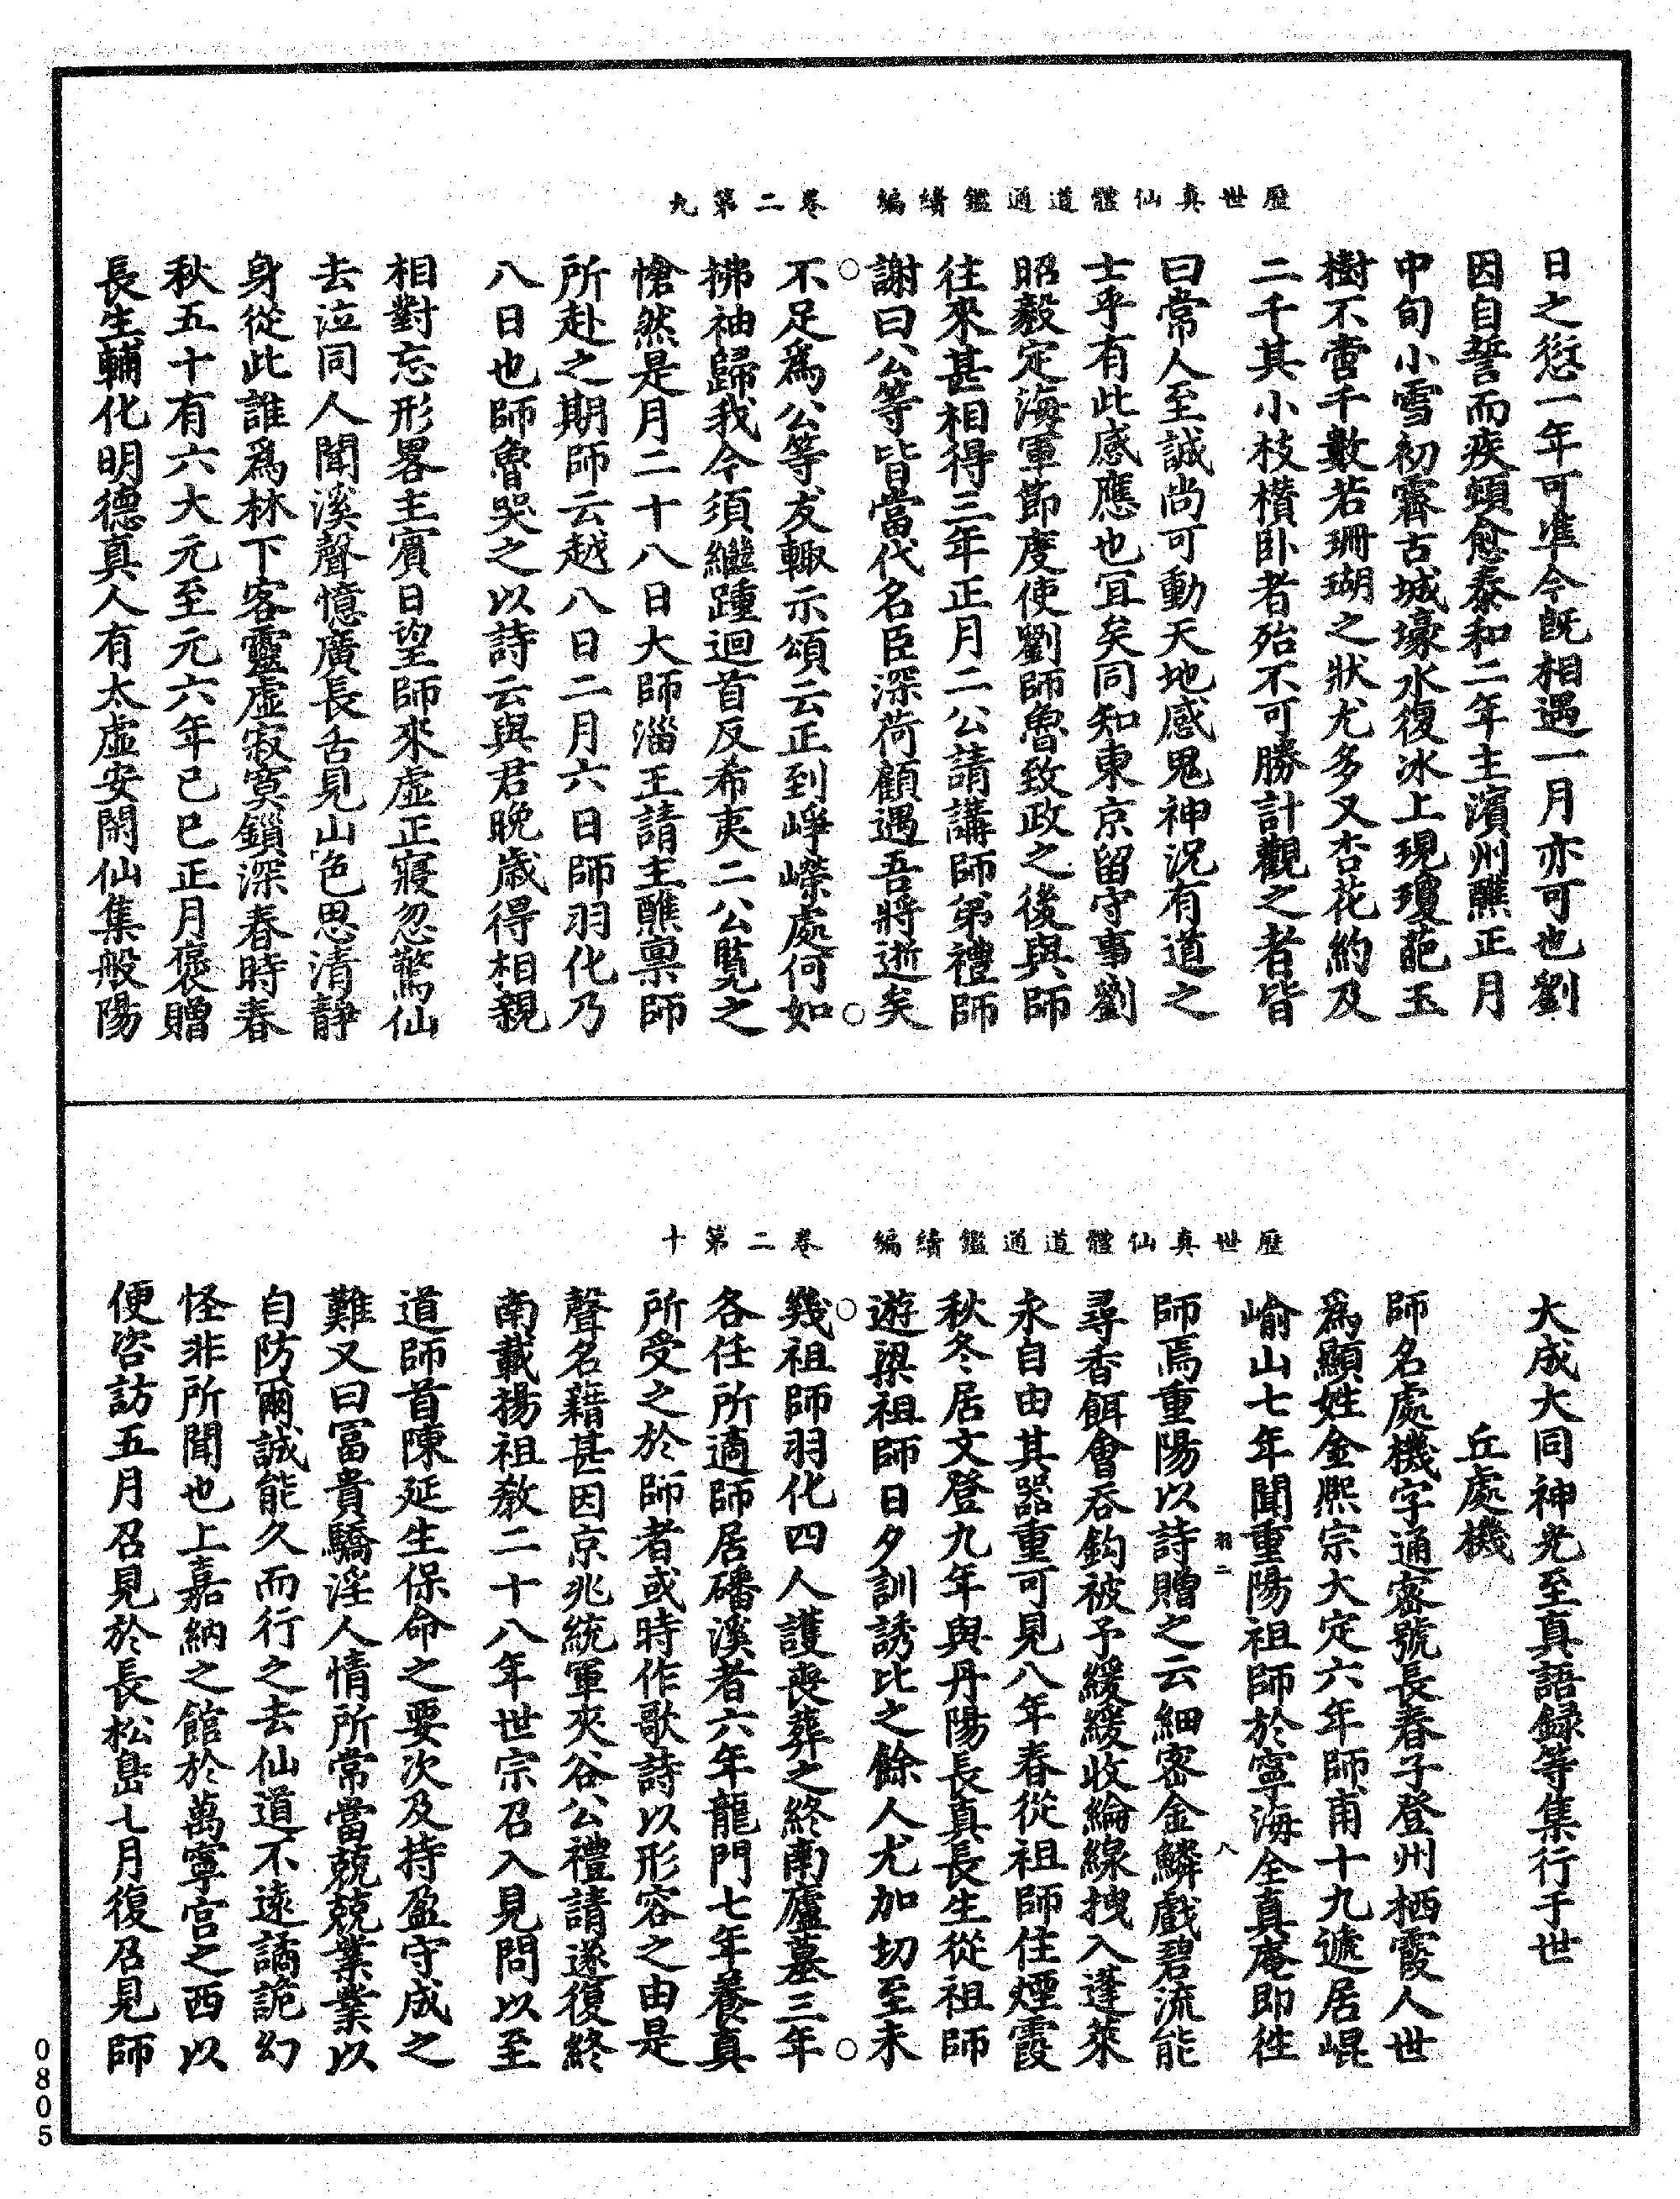 歷世真仙體道通鑑續編　卷二第九
日之愆一年可準今既相遇一月亦可也劉
因自誓而疾頓愈泰和二年主濱州醮正月
中旬小雪初霽古城壕水復冰上現瓊葩玉
樹不啻千數若珊瑚之狀尤多又杏花約及
二千其小枝櫕卧者殆不可勝計觀之者皆
曰常人至誠尚可動天地感鬼神況有道之
士乎有此感應也宜矣同知東京留守事劉
昭毅定海軍節度使劉師魯致政之後與師
往來甚相得三年正月二公請講師弟禮師
謝曰公等皆當代名臣深荷顧遇吾將逝矣
不足爲公等友輙示頌云正到崢嶸處何如
拂袖歸我今須繼踵迴首反希夷二公覧之
愴然是月二十八日大師淄王請主醮禀師
所赴之期師云越八日二月六日師羽化乃
八日也師魯哭之以詩云與君晚歲得相親
相對忘形畧主賓日望師來虛正寢忽驚仙
去泣同人聞溪聲憶廣長舌見山色思清靜
身從此誰爲林下客靈虛寂寞鎖深春時春
秋五十有六大元至元六年己巳正月褒贈
長生輔化明德真人有太虛安閑仙集般陽
歷世真仙體道通鑑續編　卷二第十
大成大同神光至真語録等集行于世
丘處機
師名處機字通密號長春子登州栖霞人世
爲顯姓金熙宗大定六年師甫十九遞居崐
崳山七年聞重陽祖師於寧海全真庵即徃
羽二　八
師焉重陽以詩贈之云細密金鱗戲碧流能
尋香餌會吞鈎被予緩緩收綸線拽入蓬萊
永自由其器重可見八年春從祖師住煙霞
秋冬居文登九年與丹陽長真長生從祖師
遊梁祖師日夕訓誘比之餘人尤加切至未
幾祖師羽化四人護喪葬之終南廬墓三年
各任所適師居磻溪者六年龍門七年養真
所受之於師者或時作歌詩以形容之由是
聲名藉甚因京兆統軍夾谷公禮請遂復終
南載揚祖教二十八年世宗召入見問以至
道師首陳延生保命之要次及持盈守成之
難又曰冨貴驕淫人情所常當兢兢業業以
自防爾誠能久而行之去仙道不遠譎詭幻
怪非所聞也上嘉納之館於萬寧宫之西以
便咨訪五月召見於長松島七月復召見師
0805